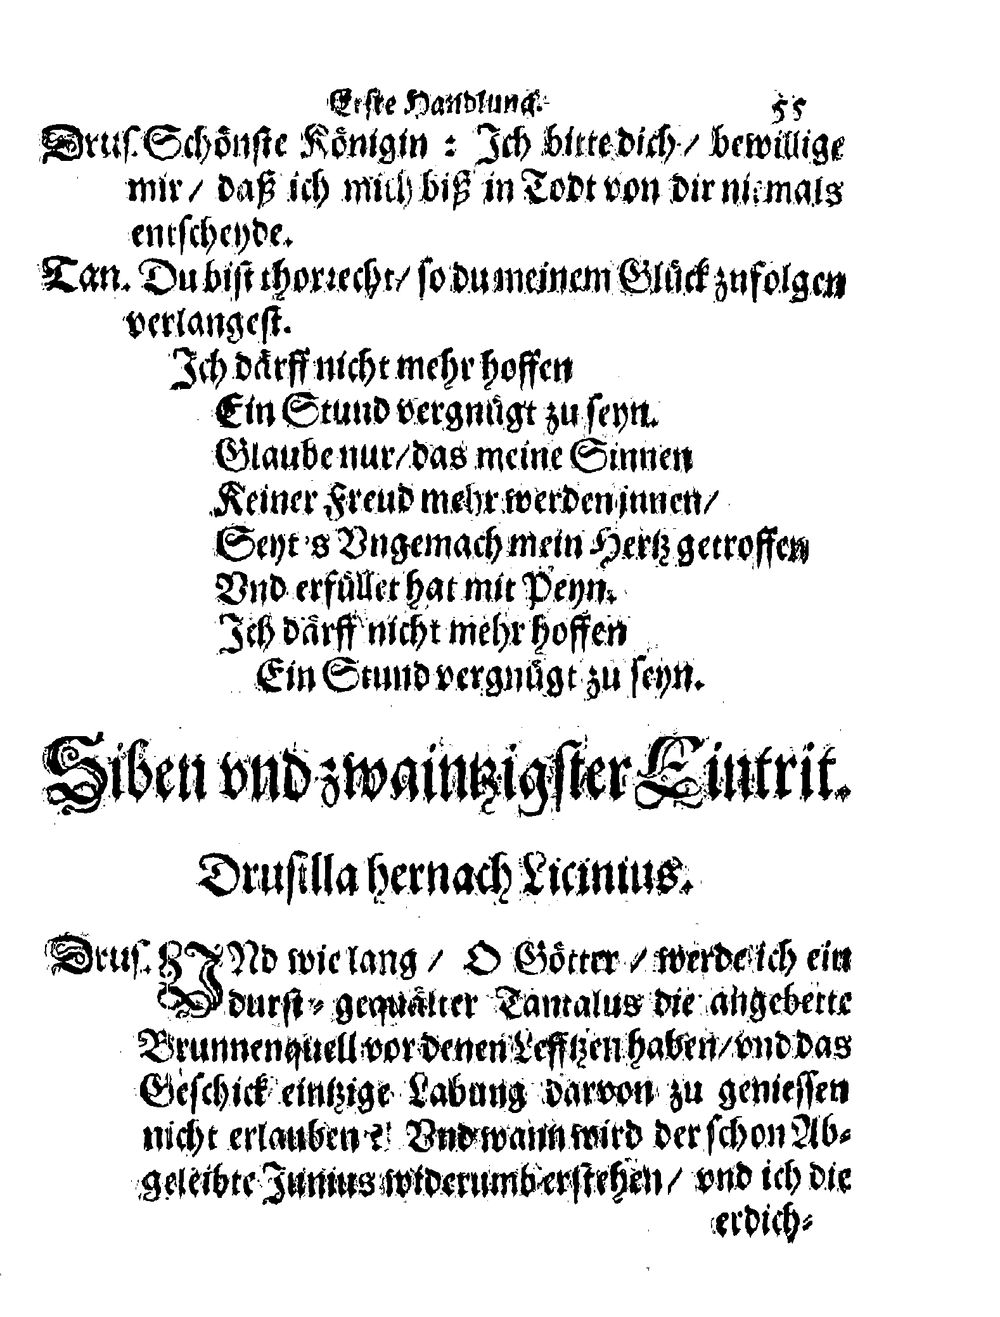 Erste Handlung. 55
Drus. Schönste Königin : Jch bitte dich / bewillige
mir / daß ich mich biß in Todt von dir niemals
entscheyde.
Tan. Du bist thorrecht / so du meinem Glück zufolgen
verlangest.
Jch därff nicht mehr hoffen
Ein Stund vergnügt zu seyn.
Glaube nur / das meine Sinnen
Keiner Freud mehr werden jnnen /
Seyt's Vngemach mein Hertz getroffen
Vnd erfüllet hat mit Peyn.
Jch därff nicht mehr hoffen
Ein Stund vergnügt zu seyn.
Siben vnd zwaintzigster Eintrit.
Drusilla hernach Licinius.
Drus. VNd wie lang / O Götter / werde ich ein
durst- gequälter Tantalus die angebette
Brunnenquell vor denen Lefftzen haben / vnd das
Geschick eintzige Labung darvon zu geniessen
nicht erlauben ? Vnd wann wird der schon Ab-
geleibte Junius widerumb erstehen / vnd ich die
erdich-